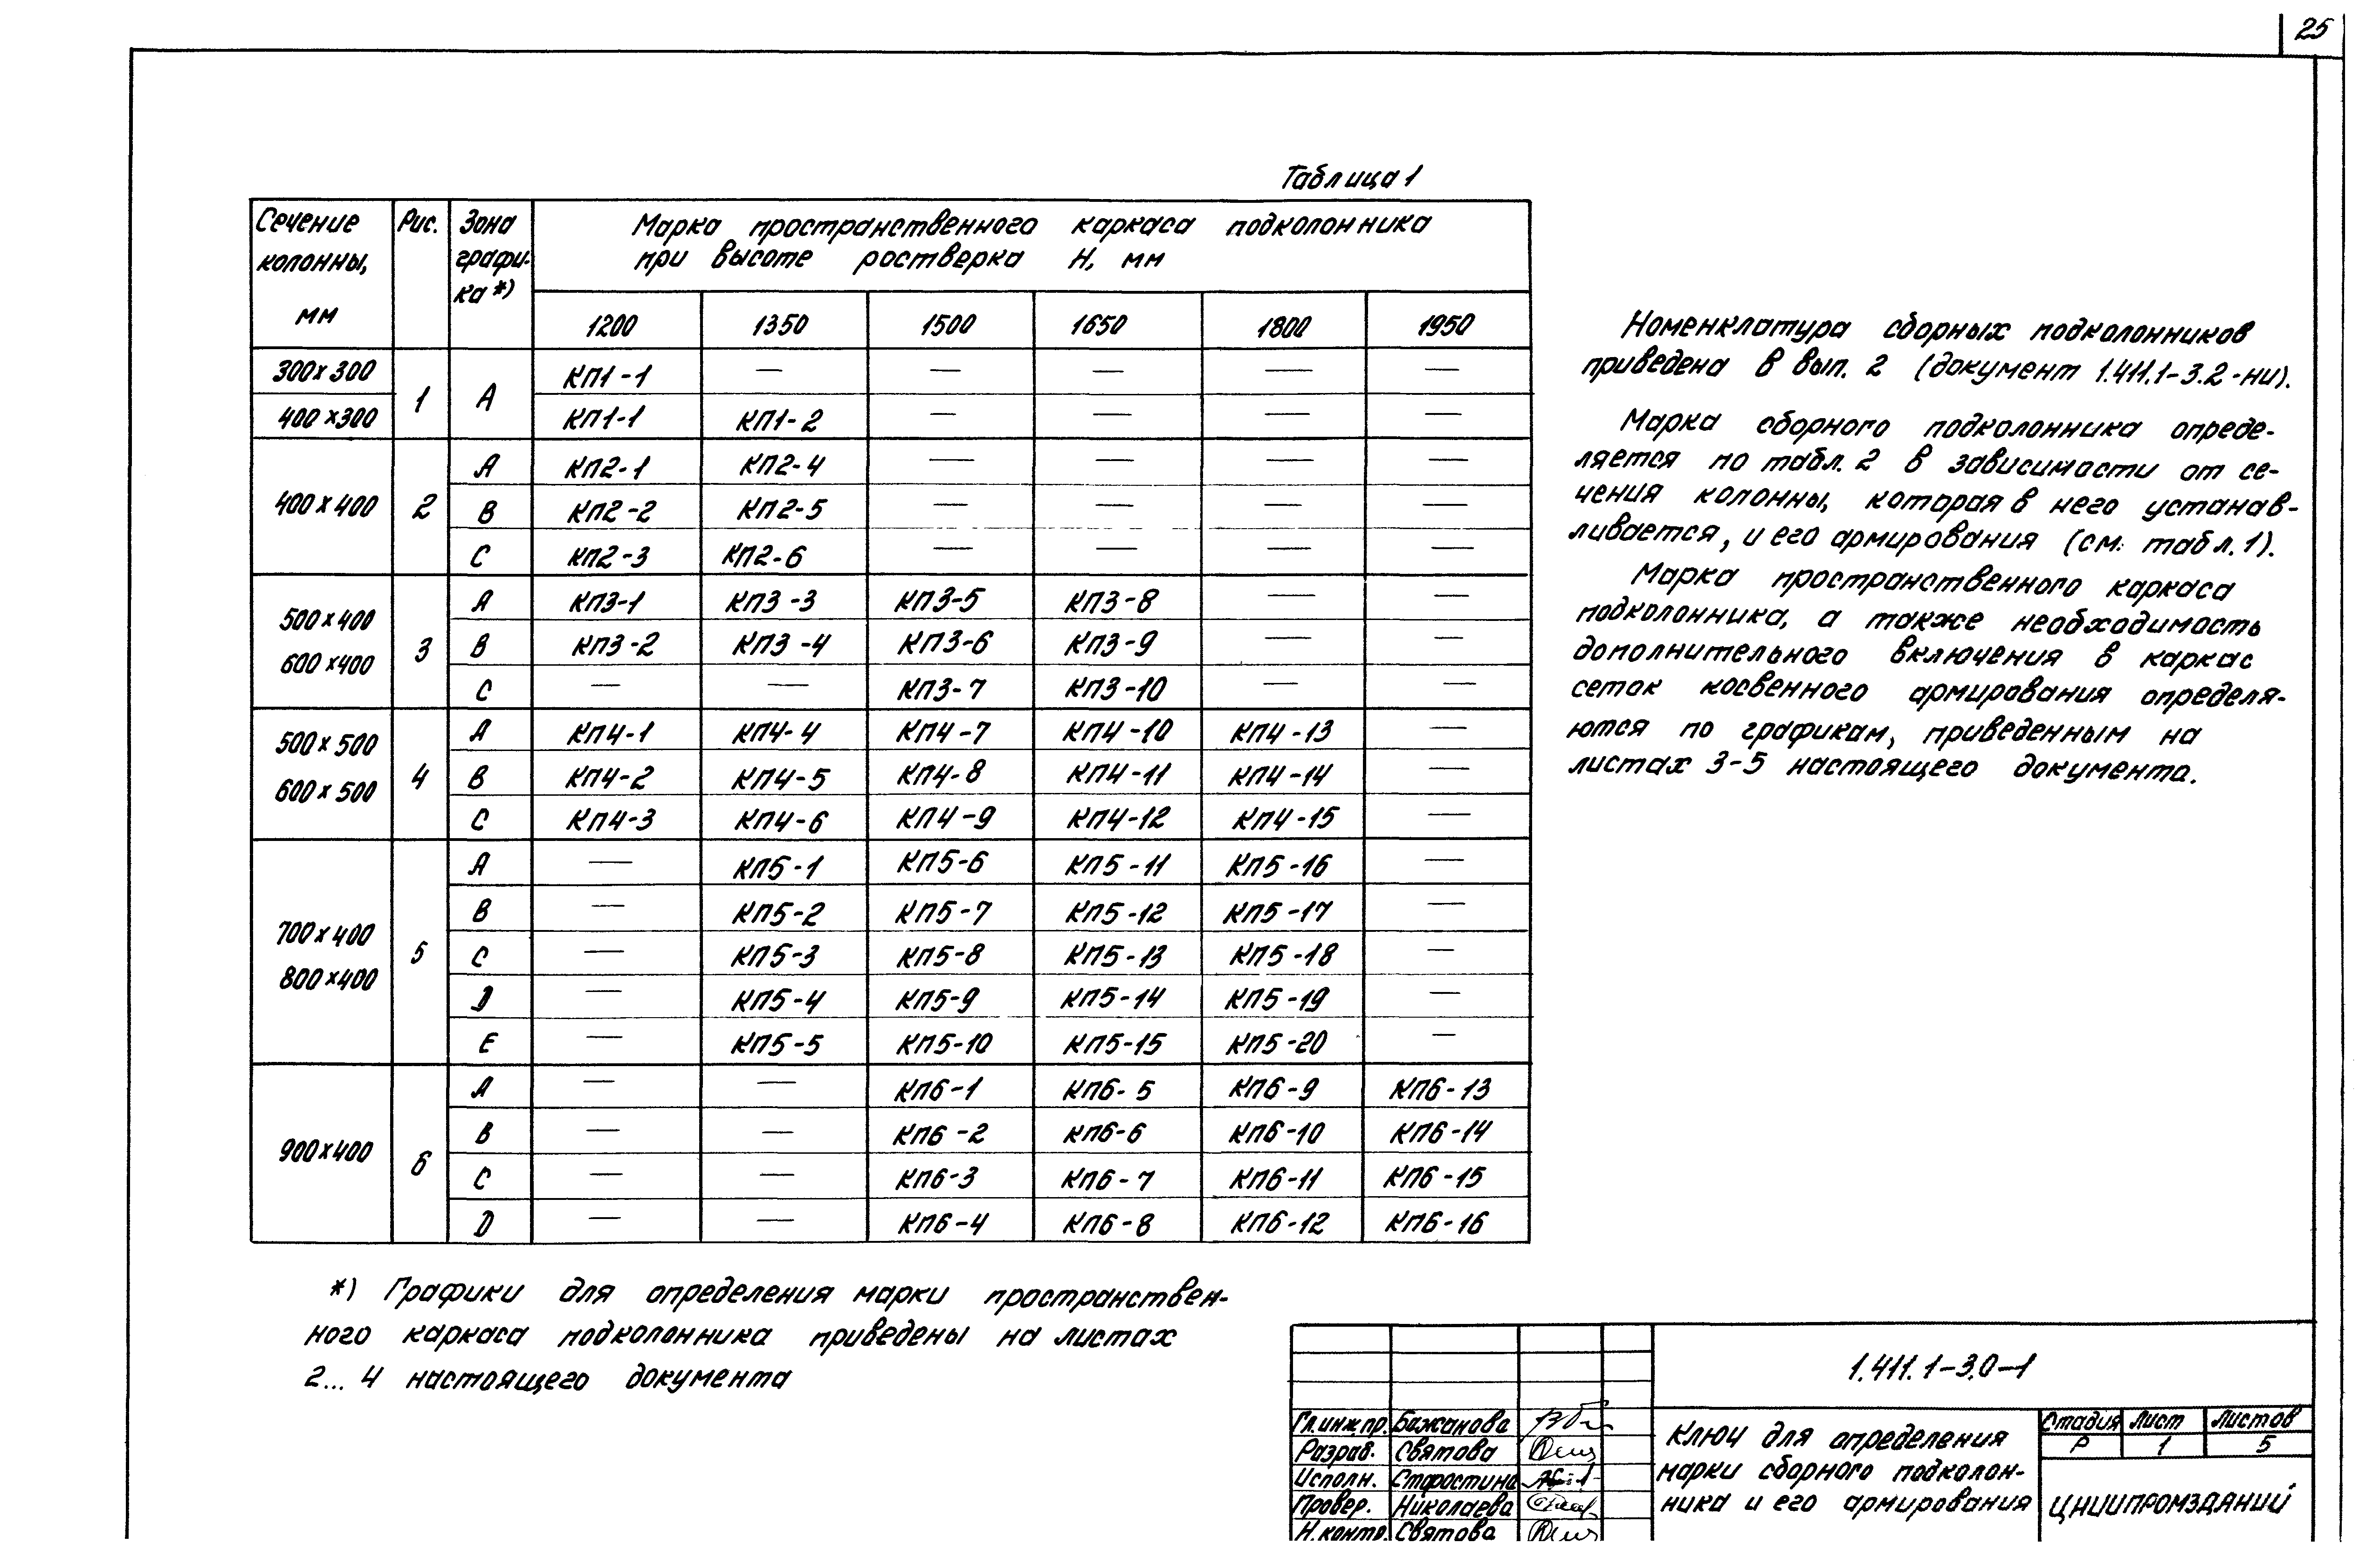 25
Таблица 1
Сечение колонны, мм | Рис. | Зона графи-ка *) | Марка пространственного каркаса подколонника при высоте ростверка Н, мм
1200 | 1350 | 1500 | 1650 | 1800 | 1950
300х300 | 1 | А | КП1-1 | — | — | — | — | —
400х300 | КП1-1 | КП1-2 | — | — | — | —
400х400 | 2 | А | КП2-1 | КП2-4 | — | — | — | —
В | КП2-2 | КП2-5 | — | — | — | —
С | КП2-3 | КП2-6 | — | — | — | —
500х400 600х400 | 3 | А | КП3-1 | КП3-3 | КП3-5 | КП3-8 | — | —
В | КП3-2 | КП3-4 | КП3-6 | КП3-9 | — | —
С | — | — | КП3-7 | КП3-10 | — | —
500х500 600х500 | 4 | А | КП4-1 | КП4-4 | КП4-7 | КП4-10 | КП4-13 | —
В | КП4-2 | КП4-5 | КП4-8 | КП4-11 | КП4-14 | —
С | КП4-3 | КП4-6 | КП4-9 | КП4-12 | КП4-15 | —
700х400 800х400 | 5 | А | — | КП5-1 | КП5-6 | КП5-11 | КП5-16 | —
В | — | КП5-2 | КП5-7 | КП5-12 | КП5-17 | —
С | — | КП5-3 | КП5-8 | КП5-13 | КП5-18 | —
D | — | КП5-4 | КП5-9 | КП5-14 | КП5-19 | —
Е | — | КП5-5 | КП5-10 | КП5-15 | КП5-20 | —
900х400 | 6 | А | — | — | КП6-1 | КП6-5 | КП6-9 | КП6-13
В | — | — | КП6-2 | КП6-6 | КП6-10 | КП6-14
С | — | — | КП6-3 | КП6-7 | КП6-11 | КП6-15
D | — | — | КП6-4 | КП6-8 | КП6-12 | КП6-16
*) Графики для определения марки пространствен-
ного каркаса подколонника приведены на листах
2... 4 настоящего документа
Номенклатура сборных подколонников
приведена в вып. 2 (документ 1.411.1-3.2-ни).
Марка сборного подколонника опреде-
ляется по табл. 2 в зависимости от се-
чения колонны, которая в него устанав-
ливается, и его армирования (см. табл. 1).
Марка пространственного каркаса
подколонника, а также необходимость
дополнительного включения в каркас
сеток косвенного армирования определя-
ются по графикам, приведенным на
листах 3-5 настоящего документа.
1.411.1-3.0-1
Гл.инж.пр. Бажанова
Разраб. Святова
Исполн. Старостина
Провер. Николаева
Н.контр. Святова
Ключ для определения
марки сборного подколон-
ника и его армирования
Стадия | Лист | Листов
Р | 1 | 5
ЦНИИПРОМЗДАНИЙ